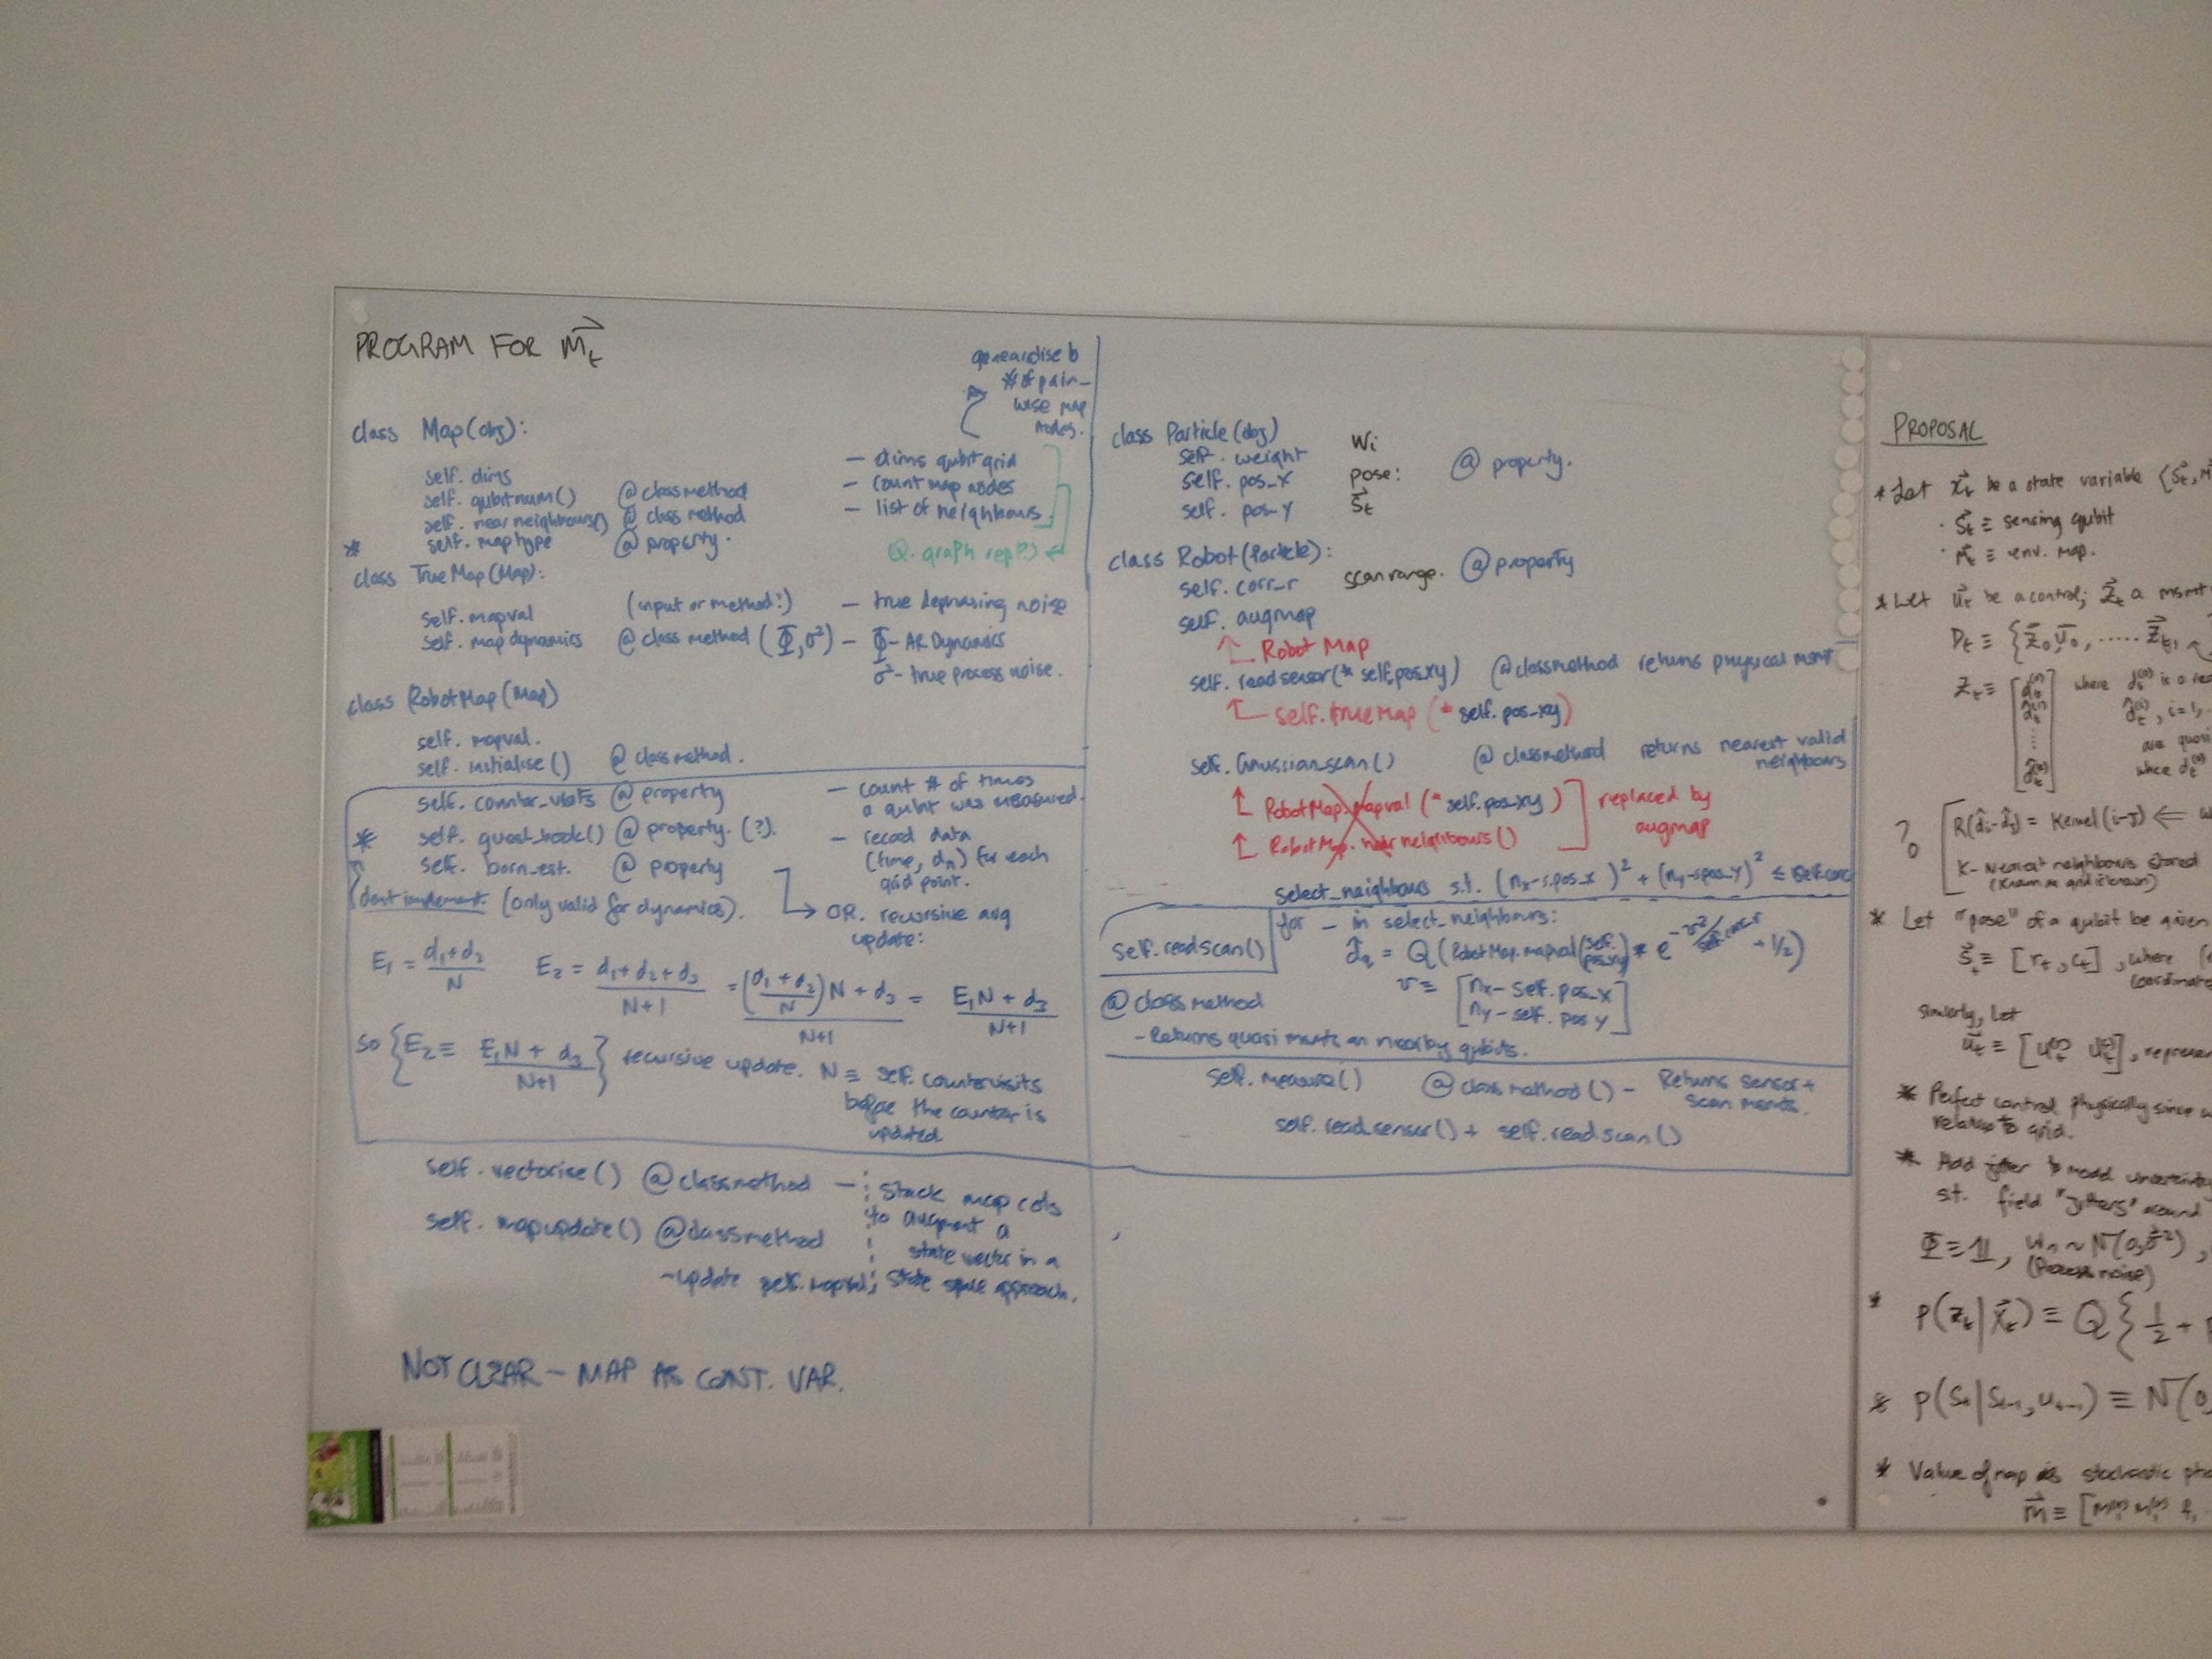 PROGRAM FOR m⃗t
generalise to
# of pair-
wise map
nodes.
class Map(obj):
self.dims
— dims qubit grid
self.qubitnum() @classmethod
— count map nodes
self.nearneighbours() @classmethod
— list of neighbours
* self.maptype @property.
Q. graph rep?
class TrueMap(Map):
self.mapval (input or method?) — true dephasing noise
self.mapdynamics @classmethod (Φ, σ²) — Φ - AR Dynamics
σ² - true process noise.
class RobotMap(Map)
self.mapval.
self.initialise() @classmethod.
self.counter_visits @property
— count # of times
a qubit was measured.
* self.guest_book() @property. (?).
— record data
(time, dn) for each
grid point.
self.born_est. @property
dont implement. (only valid for dynamics).
OR. recursive avg
update:
E₁ = (d₁+d₂)/N E₂ = (d₁+d₂+d₃)/(N+1) = (((d₁+d₂)/N)N + d₃)/(N+1) = (E₁N + d₃)/(N+1)
so {E₂ ≡ (E₁N + d₃)/(N+1)} recursive update. N ≡ self.countervisits
before the counter is
updated
self.vectorise() @classmethod — stack map cols
to augment a
state vector in a
state space approach.
self.mapupdate() @classmethod
- update self.mapval
NOT CLEAR — MAP AS CONT. VAR.
class Particle(obj)
self.weight Wi
self.pos_x pose: @property.
self.pos_y S⃗t
class Robot(Particle):
self.corr_r scan range. @property
self.augmap
Robot Map
self.readsensor(*self.pos_xy) @classmethod returns physical msmt
self.trueMap(*self.pos_xy)
self.Gaussian_scan() @classmethod returns nearest valid
neighbours
RobotMap.mapval(*self.pos_xy)
RobotMap.near neighbours()
replaced by
augmap
select_neighbours s.t. (nx-s.pos_x)² + (ny-s.pos_y)² ≤
self.readscan()
for — in select_neighbours:
d̂q = Q(RobotMap.mapval(self.pos_xy) * e^ + 1/2)
v ≡ [nx - self.pos_x
ny - self.pos_y]
@classmethod
- Returns quasi msmts on nearby qubits.
self.measure() @classmethod() - Returns sensor +
scan msmts.
self.readsensor() + self.readscan()
PROPOSAL
* Let x⃗t be a state variable {S⃗t,
· S⃗t ≡ sensing qubit
· M⃗t ≡ env. map.
* Let u⃗t be a control; z⃗t a msmt
Dt ≡ {z⃗0, u⃗0, .....
Zt ≡
where
is a
i=1,
are quasi
where
? R(d̂i-d̂j) = Kernel(i-j) ⇐
K-Nearest neighbours stored
(Known as grid is known)
* Let "pose" of a qubit be given
S⃗t ≡ [rt, ct], where
coordinate
similarly, let
u⃗t ≡
* Perfect control physically since
relative to grid.
* Add jitter to model uncertainty
s.t. field "jitters" around
Φ ≡ 𝟙, wn ~ N(0, σ²),
(Process noise)
* P(zt|x⃗t) ≡ Q{1/2 +
* P(St|St-1, ut-1) ≡ N(0,
* Value of map is stochastic
m⃗ ≡